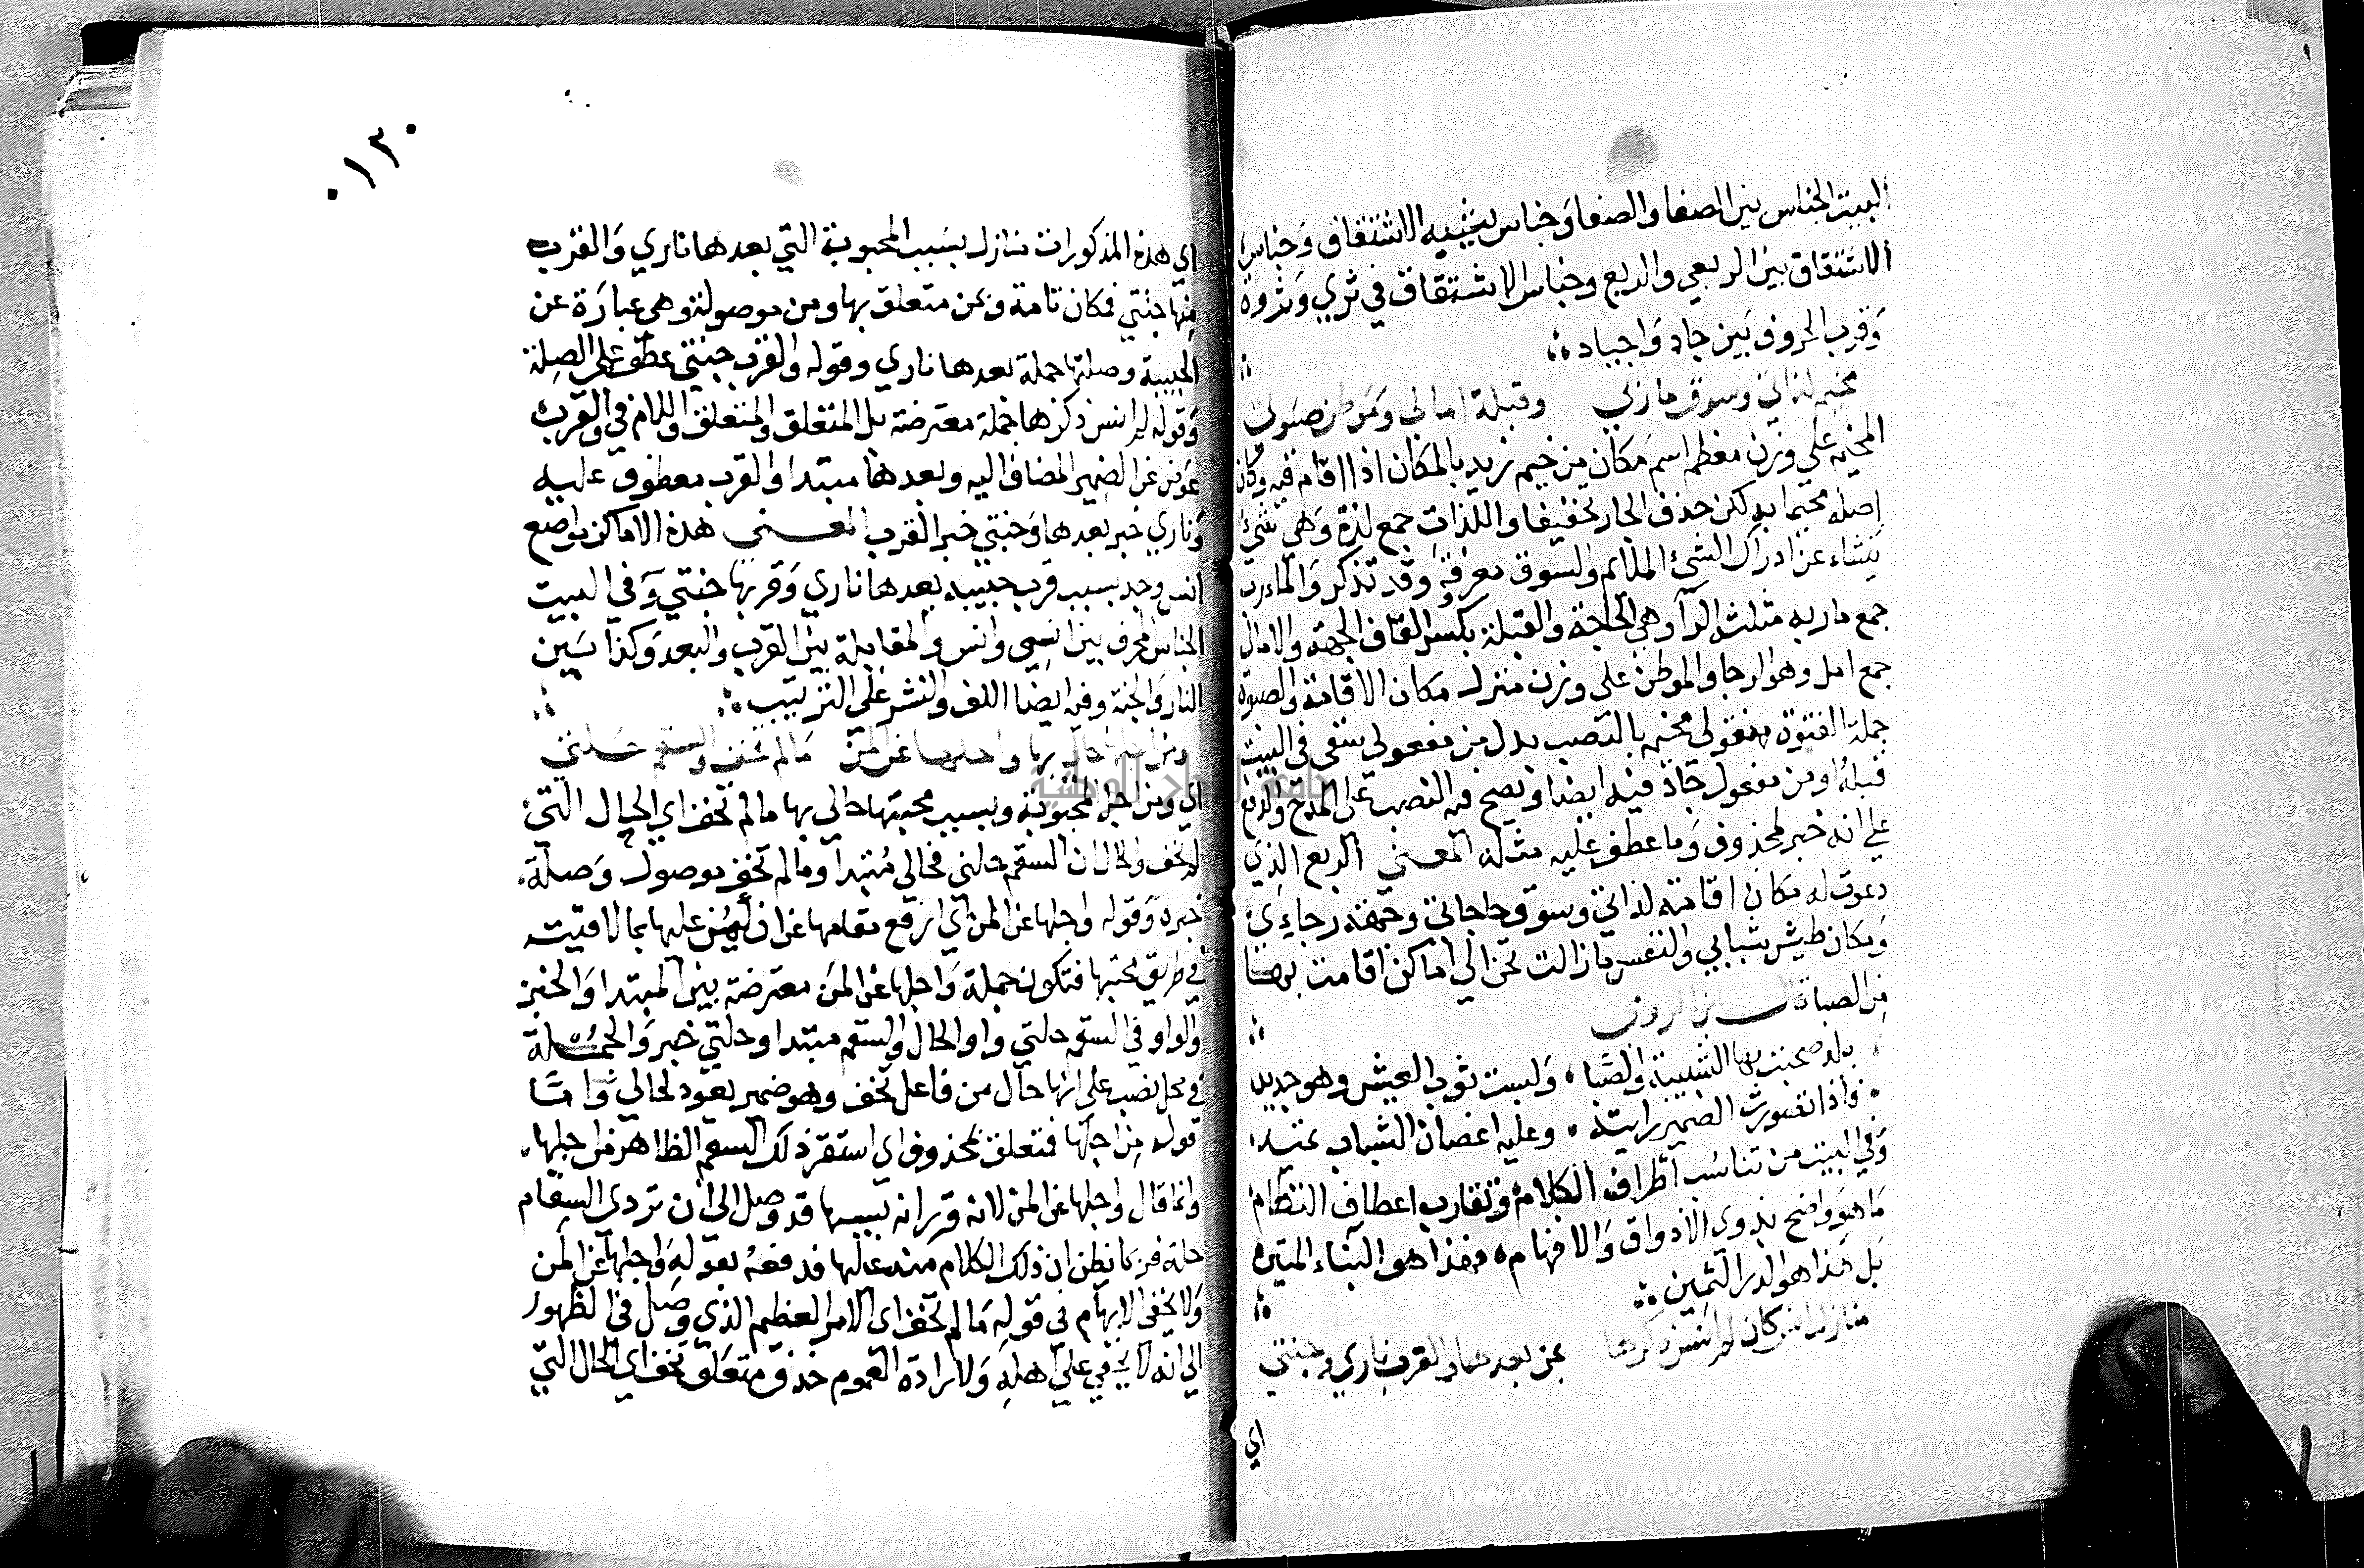 البيت الجناس بين الصفا والصفا وجناس شبيه الاشتقاق وجناس
الاشتقاق بين الربعي والربع وجناس الاشتقاق في ثري وثروة
وقرب الحروف بين جاد واجياد
مخيم لذاتي وسوق ماربي وقبلة امالي وموطن صبوتي
المخيم على وزن معظم اسم مكان من خيم زيد بالمكان اذا اقام فيه وكان
اصله مخيما به لكن حذف الجار تخفيفا واللذات جمع لذة وهي شيء
ينشاء عن ادراك الشيء الملايم والسوق معرفة وقد تذكر والمارب
جمع ماربه مثلث الرآ وهي الحاجة والقبلة بكسر القاف الجهة والامال
جمع امل وهو الرجا والموطن على وزن منزل مكان الاقامة والصبوة
جملة الفتوة فقولي مخيم بالنصب بدل من مفعولي سقى في البيت
قبله او من مفعول جاد فيه ايضا ويصح فيه النصب على المدح والرفع
على انه خبر لمحذوف وما عطف عليه مثله المعنى الربع الذي
دعوت له مكان اقامة لذاتي وسوق حاجاتي وجهة رجاءي
ومكان طيش شبابي والنفس ما زالت تحن الى اماكن اقامت بها
من الصبا قال ابن الرومي
بلد صحبت بها الشبيبة والصبا ولبست ثوب العيش وهو جديد
فاذا تصور في الضمير رايته وعليه اغصان الشباب تميد
وفي البيت من تناسب اطراف الكلام وتقارب اعطاف النظام
ما هو واضح بذوى الاذواق والافهام فهذا هو البناء المتين
بل هذا هو الدر الثمين
منازل انس كان لم انس ذكرها بمن بعدها والقرب ناري وجنتي
اي
٠١٣٠
اي هذه المذكورات منازل بسبب المحبوبة التي بعدها ناري والقرب
منها جنتي فكان تامة وبمن متعلق بها ومن موصولة وهي عبارة عن
الحبيبة وصلتها جملة بعدها ناري وقوله والقرب جنتي عطف على الصلة
وقوله لم انس ذكرها جملة معترضة بين المتعلق والمتعلق واللام في والقرب
عوض عن الضمير المضاف اليه وبعدها مبتدا والقرب معطوف عليه
وناري خبر بعدها وجنتي خبر القرب المعنى هذه الاماكن مواضع
انس وجد بسبب قرب حبيبه بعدها ناري وقربها جنتي وفي البيت
الجناس المحرف بين انسي وانس والمقابلة بين القرب والبعد وكذا بين
النار والجنة وفيه ايضا اللف والنشر على الترتيب
ومن اجلها حالي بها واجلها عن المن ما لم تخف والسقم حلتي
اي ومن اجل المحبوبة وبسبب محبتها حالي بها ما لم تخف اي الحال التي
لم تخف والحال ان السقم حلتي فحالي مبتدا وما لم تخف موصول وصلة
خبره وقوله واجلها عن المن اي ارفع مقامها عن ان يمن عليها بما لاقيت
في طريق محبتها فتكون جملة واجلها عن المن معترضة بين المبتدا والخبر
والواو في السقم حلتي واو الحال والسقم مبتدا وحلتي خبر والجملة
في محل نصب على انها حال من فاعل تخف وهو ضمير يعود لحالي واما
قوله من اجلها فمتعلق بمحذوف اي استقر ذلك السقم الظاهر من اجلها
وانما قال واجلها عن المن لانه قرر انه بسببها قد وصل الى ان تردى السقام
حلة فربما يظن ان ذلك الكلام منه عليها فدفعه بقوله واجلها عن المن
ولا يخفى الابهام في قوله ما لم تخف اى الامر العظيم الذي وصل في الظهور
الى انه لا يخفى على اهله ولارادة العموم حذف متعلق تخف اي الحال التي